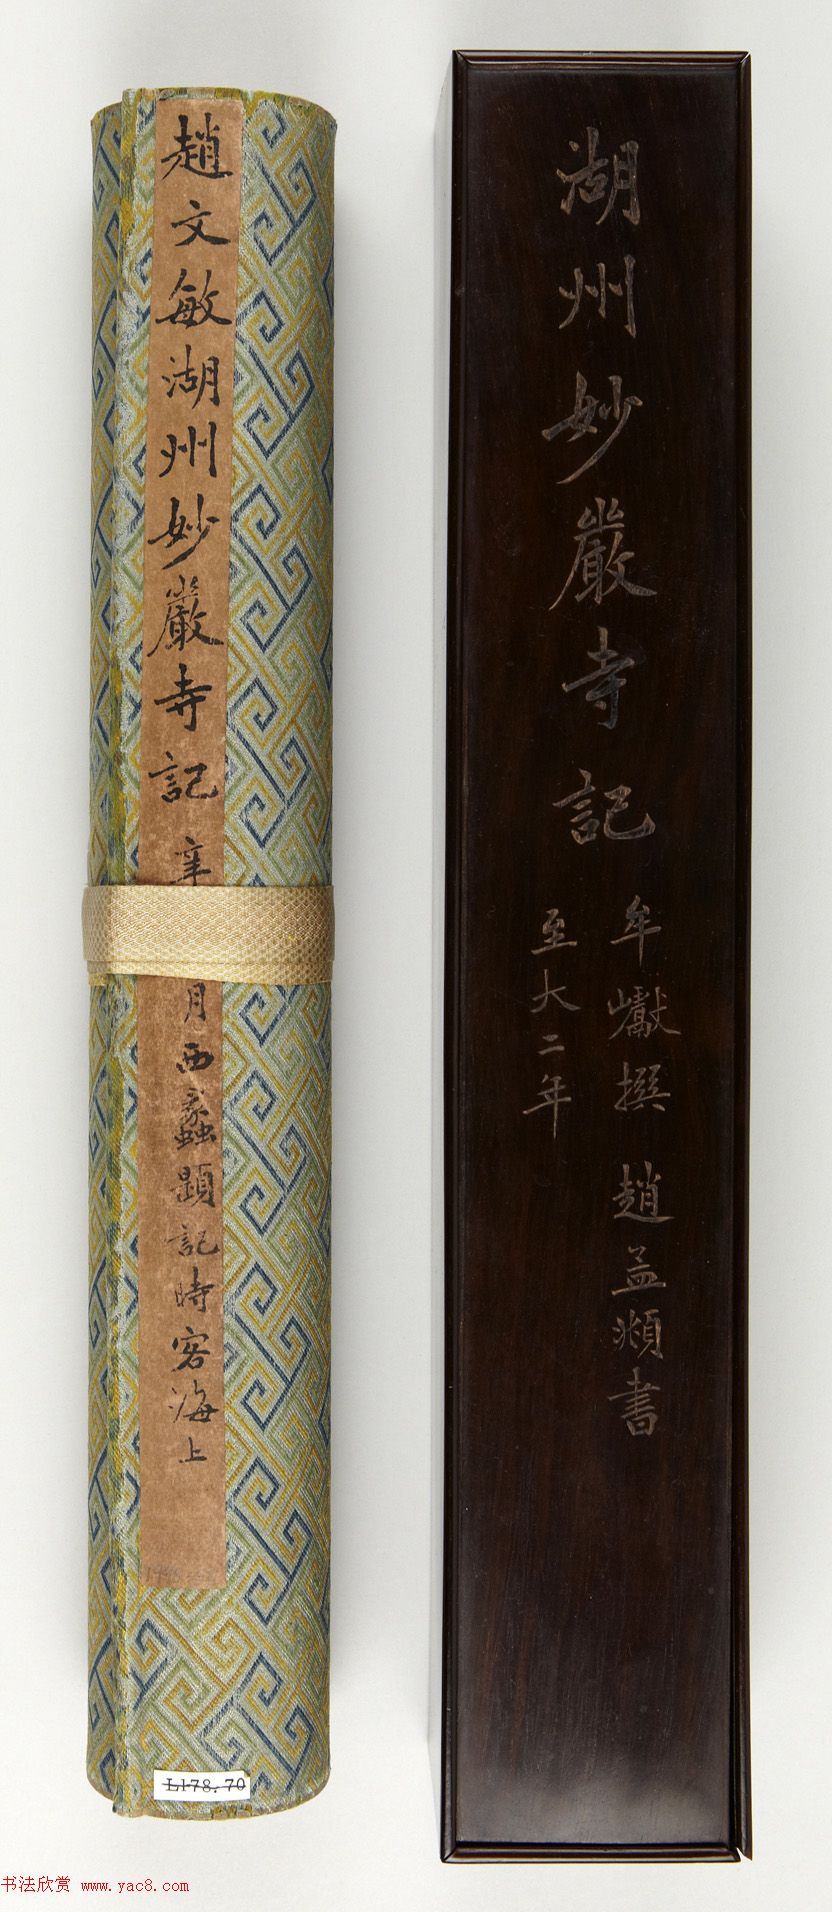 湖州妙嚴寺記
牟巘撰 趙孟頫書
至大二年
趙文敏湖州妙嚴寺記 辛 月西蠡題記時客海上
L178.70
书法欣赏 www.yac8.com